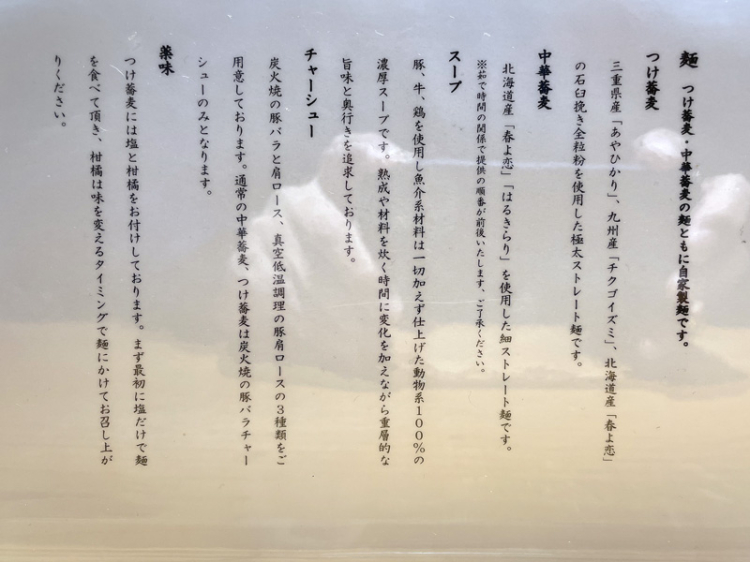 麺　つけ蕎麦・中華蕎麦の麺ともに自家製麺です。
つけ蕎麦
三重県産「あやひかり」、九州産「チクゴイズミ」、北海道産「春よ恋」
の石臼挽き全粒粉を使用した極太ストレート麺です。
中華蕎麦
北海道産「春よ恋」「はるきらり」を使用した細ストレート麺です。
※茹で時間の関係で提供の順番が前後いたします、ご了承ください。
スープ
豚、牛、鶏を使用し魚介系材料は一切加えず仕上げた動物系１００％の
濃厚スープです。熟成や材料を炊く時間に変化を加えながら重層的な
旨味と奥行きを追求しております。
チャーシュー
炭火焼の豚バラと肩ロース、真空低温調理の豚肩ロースの３種類をご
用意しております。通常の中華蕎麦、つけ蕎麦は炭火焼の豚バラチャー
シューのみとなります。
薬味
つけ蕎麦には塩と柑橘をお付けしております。まず最初に塩だけで麺
を食べて頂き、柑橘は味を変えるタイミングで麺にかけてお召し上が
りください。